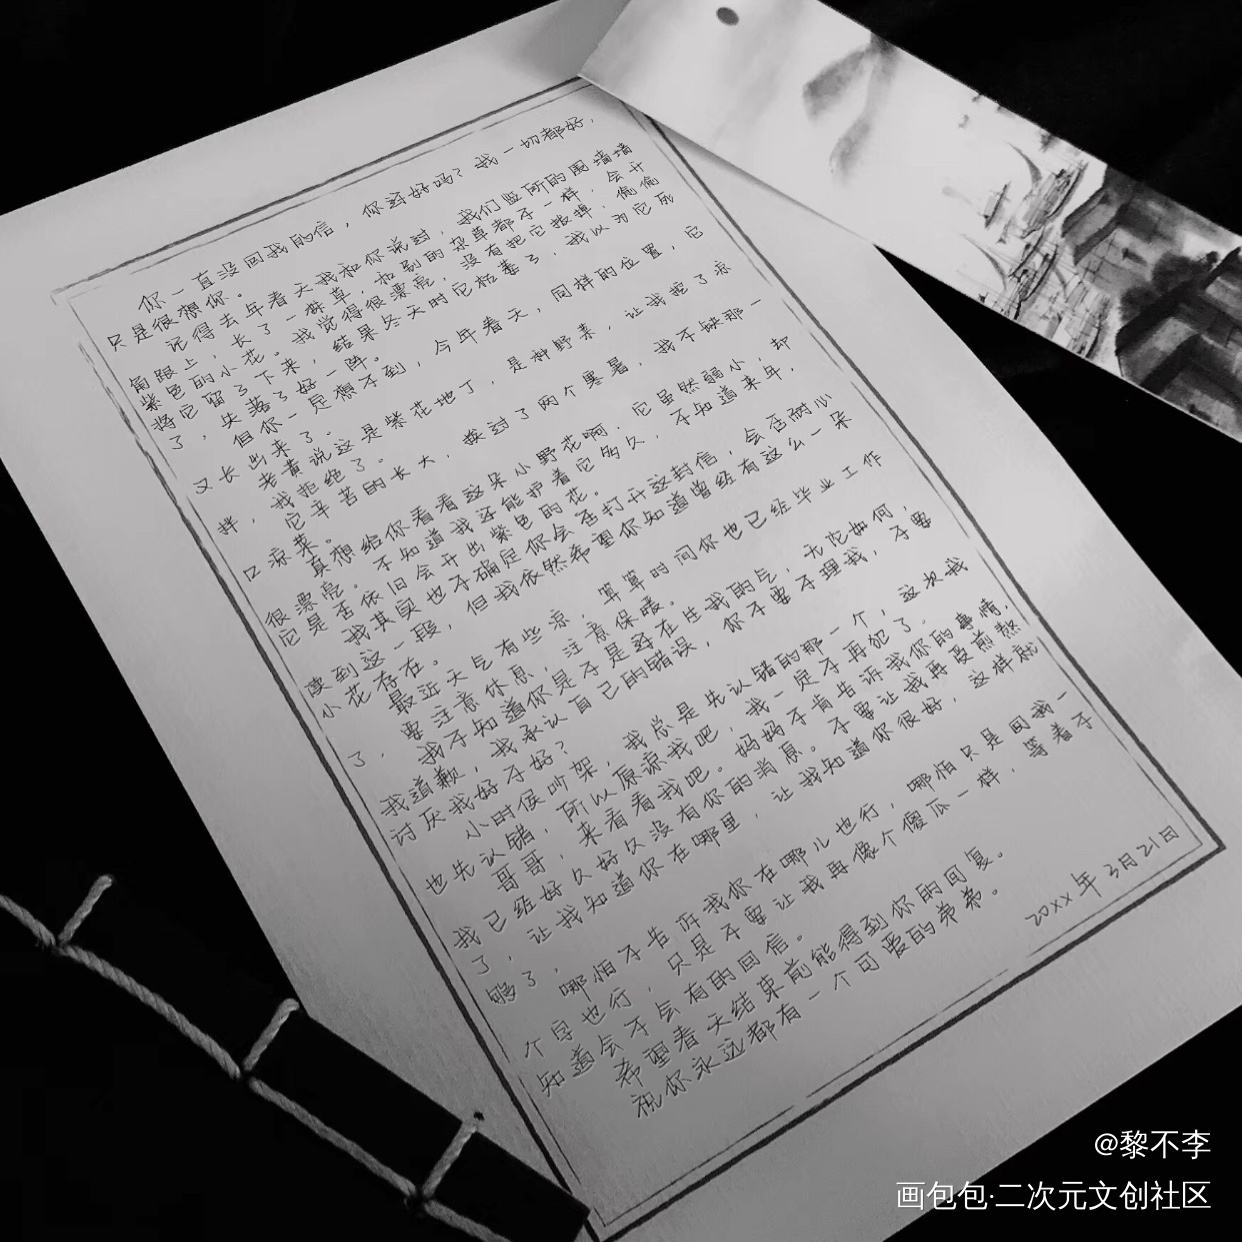 你一直没回我的信，你还好吗？我一切都好，
只是很想你。
记得去年春天我和你说过，我们监所的围墙墙
角跟上，长了一株草，和别的杂草都不一样，会开
紫色的小花。我觉得很漂亮，没有把它拔掉，偷偷
将它留了下来，结果冬天时它枯萎了，我以为它死
了，失落了好一阵。
但你一定想不到，今年春天，同样的位置，它
又长出来了。
老黄说这是紫花地丁，是种野菜，让我挖了凉
拌，我拒绝了。
它辛苦的长大，挨过了两个寒暑，我不缺那一
口凉菜。
真想给你看看这朵小野花啊，它虽然弱小，却
很漂亮。不知道我还能护着它多久，不知道来年，
它是否依旧会开出紫色的花。
我其实也不确定你会否打开这封信，会否耐心
读到这一段，但我依然希望你知道曾经有这么一朵
小花存在。
最近天气有些凉，算算时间你也已经毕业工作
了，要注意休息，注意保暖。
我不知道你是不是还在生我的气，无论如何，
我道歉，我承认自己的错误，你不要不理我，不要
讨厌我好不好？
小时候吵架，我总是先认错的那一个，这次我
也先认错，所以原谅我吧，我一定不再犯了。
哥哥，来看看我吧。妈妈不肯告诉我你的事情，
我已经好久好久没有你的消息。不要让我再受煎熬
了，让我知道你在哪里，让我知道你很好，这样就
够了，
哪怕不告诉我你在哪儿也行，哪怕只是回我一
个字也行，只是不要让我再像个傻瓜一样，等着不
知道会不会有的回信。
希望春天结束前能得到你的回复。
祝你永远都有一个可爱的弟弟。
20xx年3月21日
@黎不李
画包包·二次元文创社区